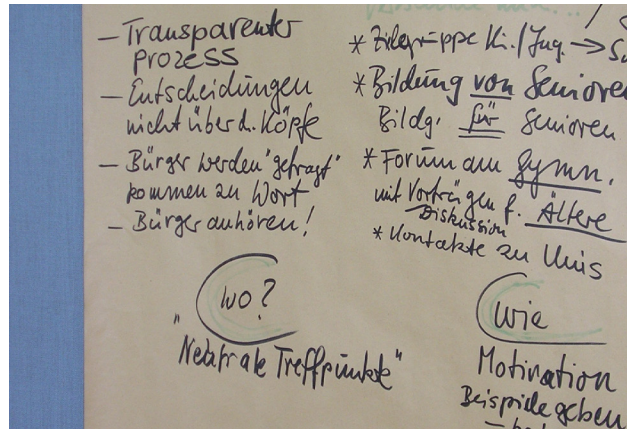 – Transparenter
prozess
– Entscheidungen
nicht über d. Köpfe
– Bürger werden "gefragt"
kommen zu Wort
– Bürger anhören!
wo?
"Neutrale Treffpunkte"
* Zielgruppe Ki./Jug. →
* Bildung von Senioren
Bildg. für Senioren
* Forum am Gymn.
mit Vorträgen f. Ältere
Diskussion
* Kontakte zu Unis
wie
Motivation
Beispiele geben